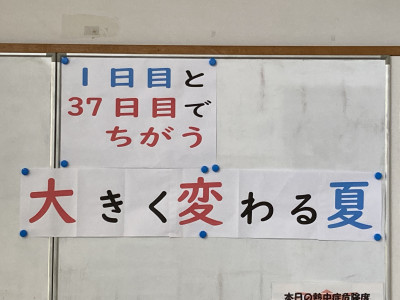 1日目と
37日目で
ちがう
大きく変わる夏
本日の熱中症危険度